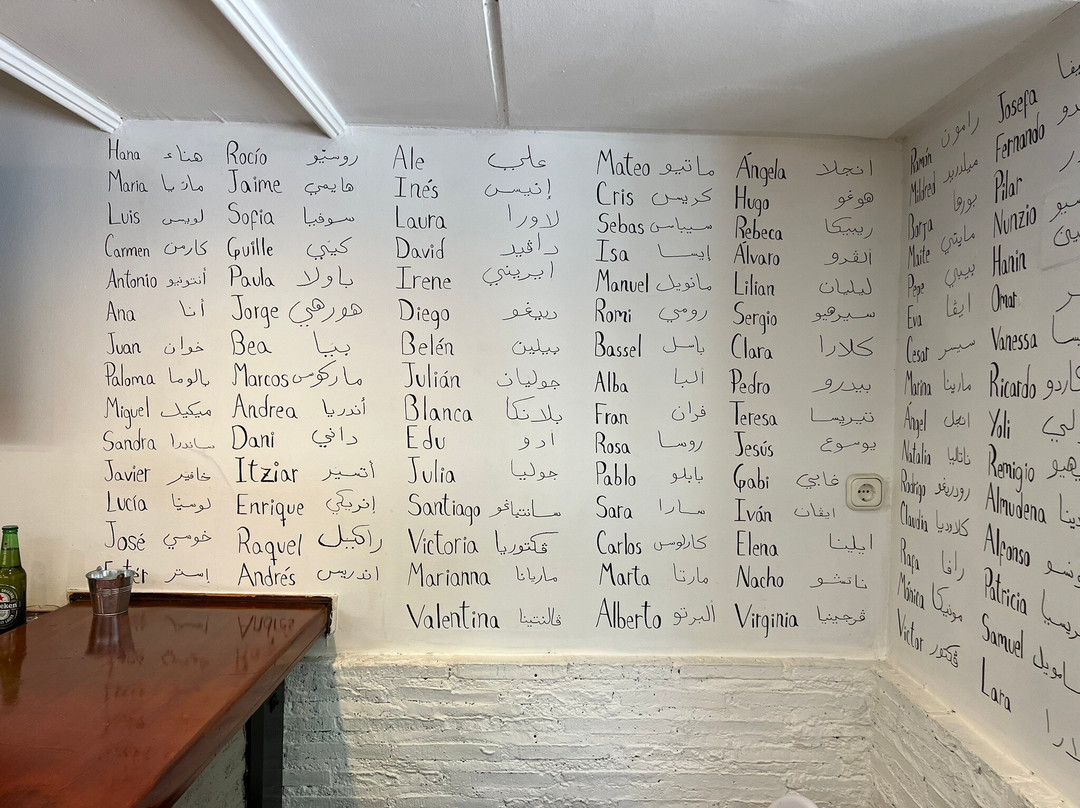 Hana هناء
Maria ماريا
Luis لويس
Carmen كارمن
Antonio أنتونيو
Ana أنا
Juan خوان
Paloma بالوما
Miguel ميكيل
Sandra ساندرا
Javier خافير
Lucía لوسيا
José خوسي
إستر
Rocío روسيو
Jaime هايمي
Sofia سوفيا
Guille كيي
Paula باولا
Jorge هورهي
Bea بيا
Marcos ماركوس
Andrea أندريا
Dani داني
Itziar أتسير
Enrique إنريكي
Raquel راكيل
Andrés اندريس
Ale علي
Inés إنيس
Laura لاورا
David داڤيد
Irene ايريني
Diego دييغو
Belén بيلين
Julián جوليان
Blanca بلانكا
Edu ادو
Julia جوليا
Santiago سانتياغو
Victoria ڤكتوريا
Marianna ماريانا
Valentina ڤالنتينا
Mateo ماتيو
Cris كريس
Sebas سيباس
Isa إيسا
Manuel مانويل
Romi رومي
Bassel باسل
Alba ألبا
Fran فران
Rosa روسا
Pablo بابلو
Sara سارا
Carlos كارلوس
Marta مارتا
Alberto ألبرتو
Ángela انجلا
Hugo هوغو
Rebeca ريبيكا
Álvaro ألڤرو
Lilian ليليان
Sergio سيرهيو
Clara كلارا
Pedro بيدرو
Teresa تيريسا
Jesús يوسوع
Gabi غابي
Iván ايڤان
Elena ايلينا
Nacho ناتشو
Virginia ڤرجينيا
Ramón رامون
Mildred ميلدريد
Borja بورها
Maite مايتي
Pepe بيبي
Eva ايڤا
Cesar سيسر
Marina مارينا
Ángel انجل
Natalia ناتاليا
Rodrigo رودريغو
Claudia كلاوديا
Rafa رافا
Mónica مونيكا
Victor ڤكتور
Josefa
Fernando
Pilar
Nunzio
Hanin
Omar
Vanessa
Ricardo
Yoli
Remigio
Almudena
Alfonso
Patricia
Samuel
Lara